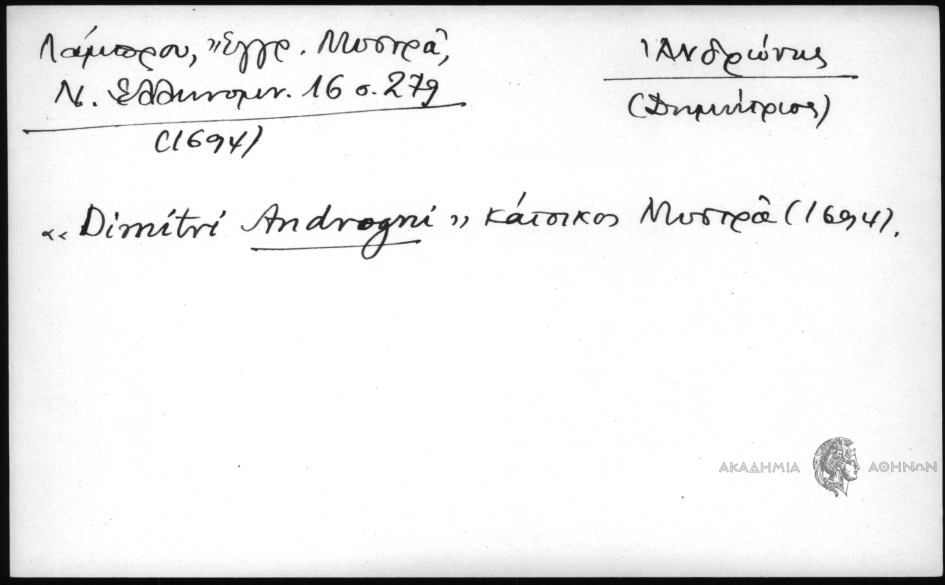 Λάμπρου, Ἔγγρ. Μυστρᾶ,
Ν. Ἑλληνομν. 16 σ. 279
(1694)
Ἀνδρώνης
(Δημήτριος)
«Dimitri Androgni» κάτοικος Μυστρᾶ (1694).
ΑΚΑΔΗΜΙΑ ΑΘΗΝΩΝ